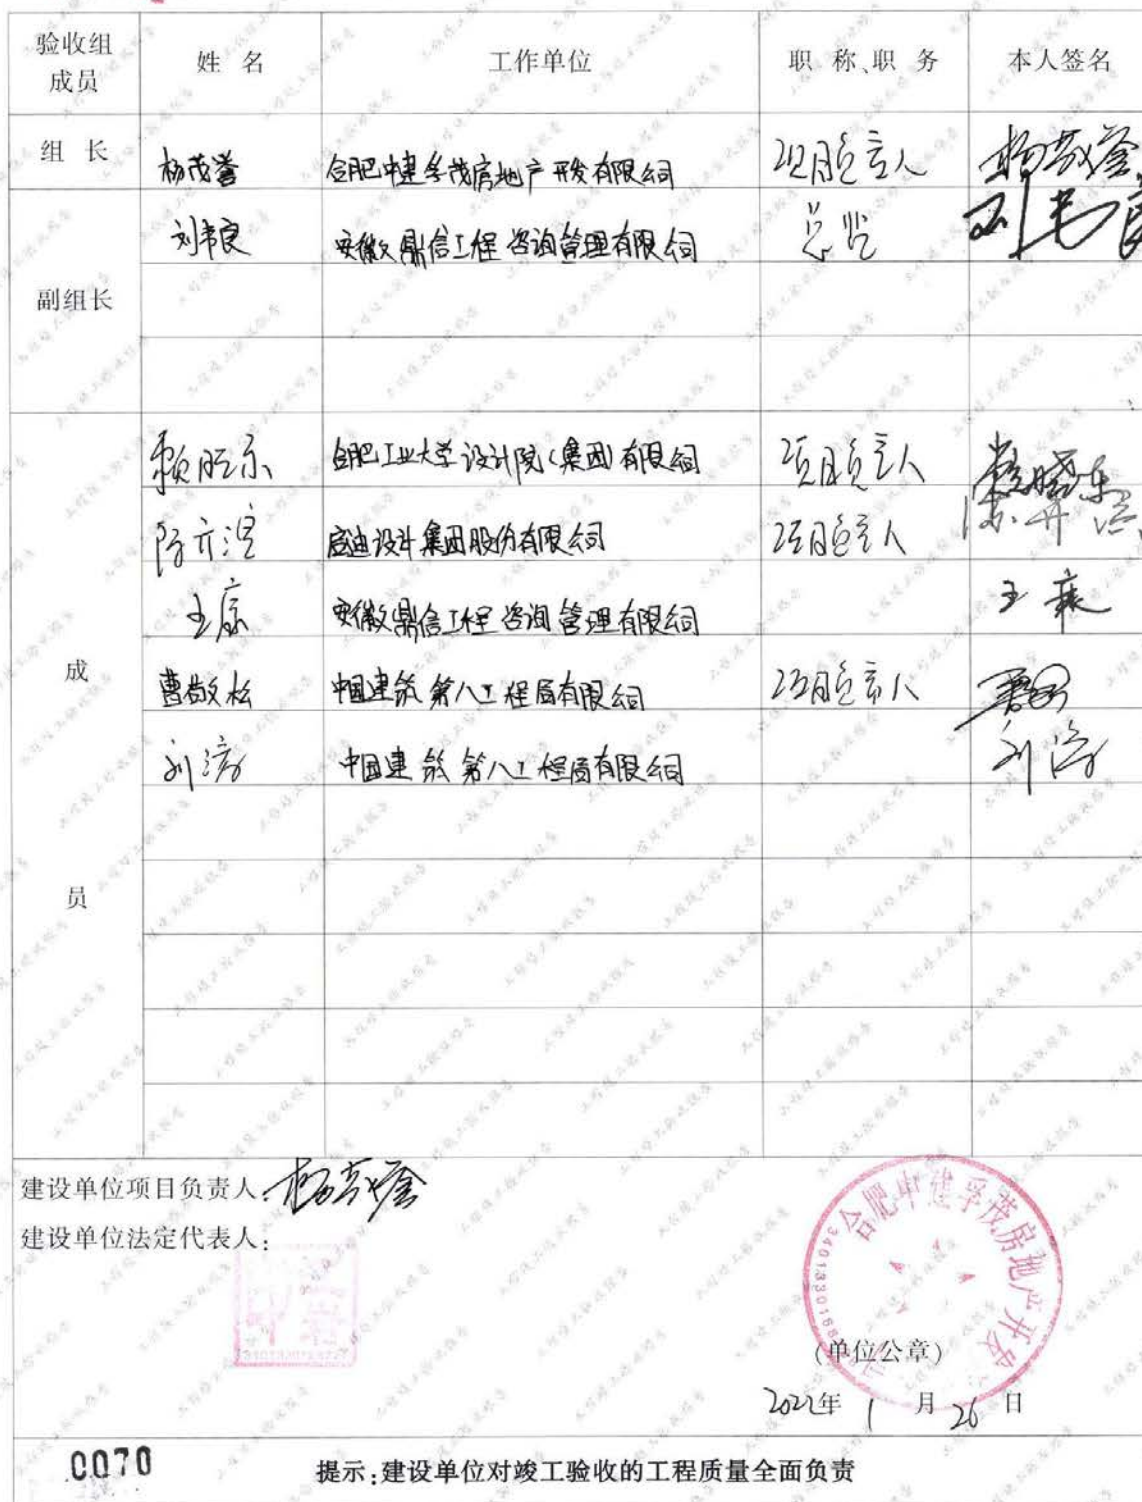 验收组成员 姓 名 工作单位 职 称、职 务 本人签名
组 长 杨茂 合肥中建孚茂房地产开发有限公司 项目负责人
刘韦良 安徽鼎信工程咨询管理有限公司 总监
副组长
合肥工业大学设计院(集团)有限公司 项目负责人
启迪设计集团股份有限公司 项目负责人
王康 安徽鼎信工程咨询管理有限公司 王康
成 曹敬松 中国建筑第八工程局有限公司 项目负责人
刘涛 中国建筑第八工程局有限公司 刘涛
员
建设单位项目负责人:
建设单位法定代表人:
合肥中建孚茂房地产开发
(单位公章)
2022年 1 月 26 日
0070 提示:建设单位对竣工验收的工程质量全面负责